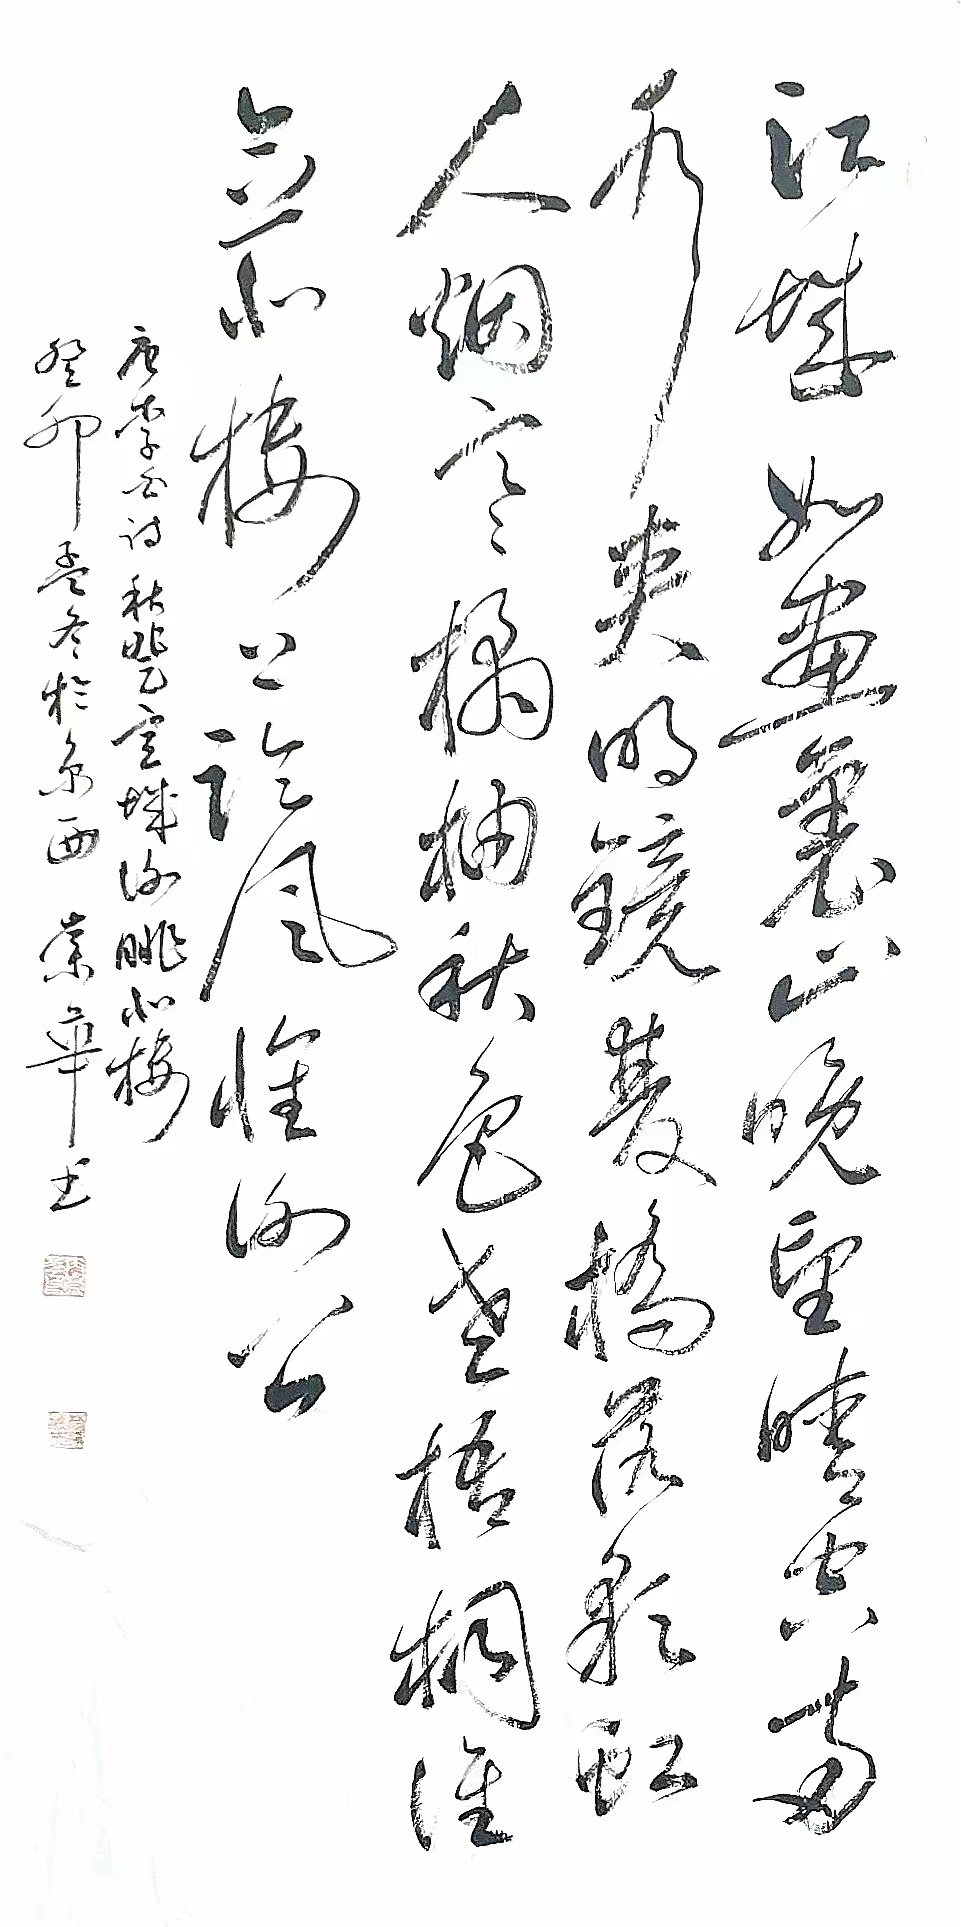 江城如畫裏山晚望晴空兩
水夾明鏡雙橋落彩虹
人烟寒橘柚秋色老梧桐誰
念北樓上臨風懷謝公
唐李白詩秋登宣城謝朓北樓
癸卯孟冬於京西華书